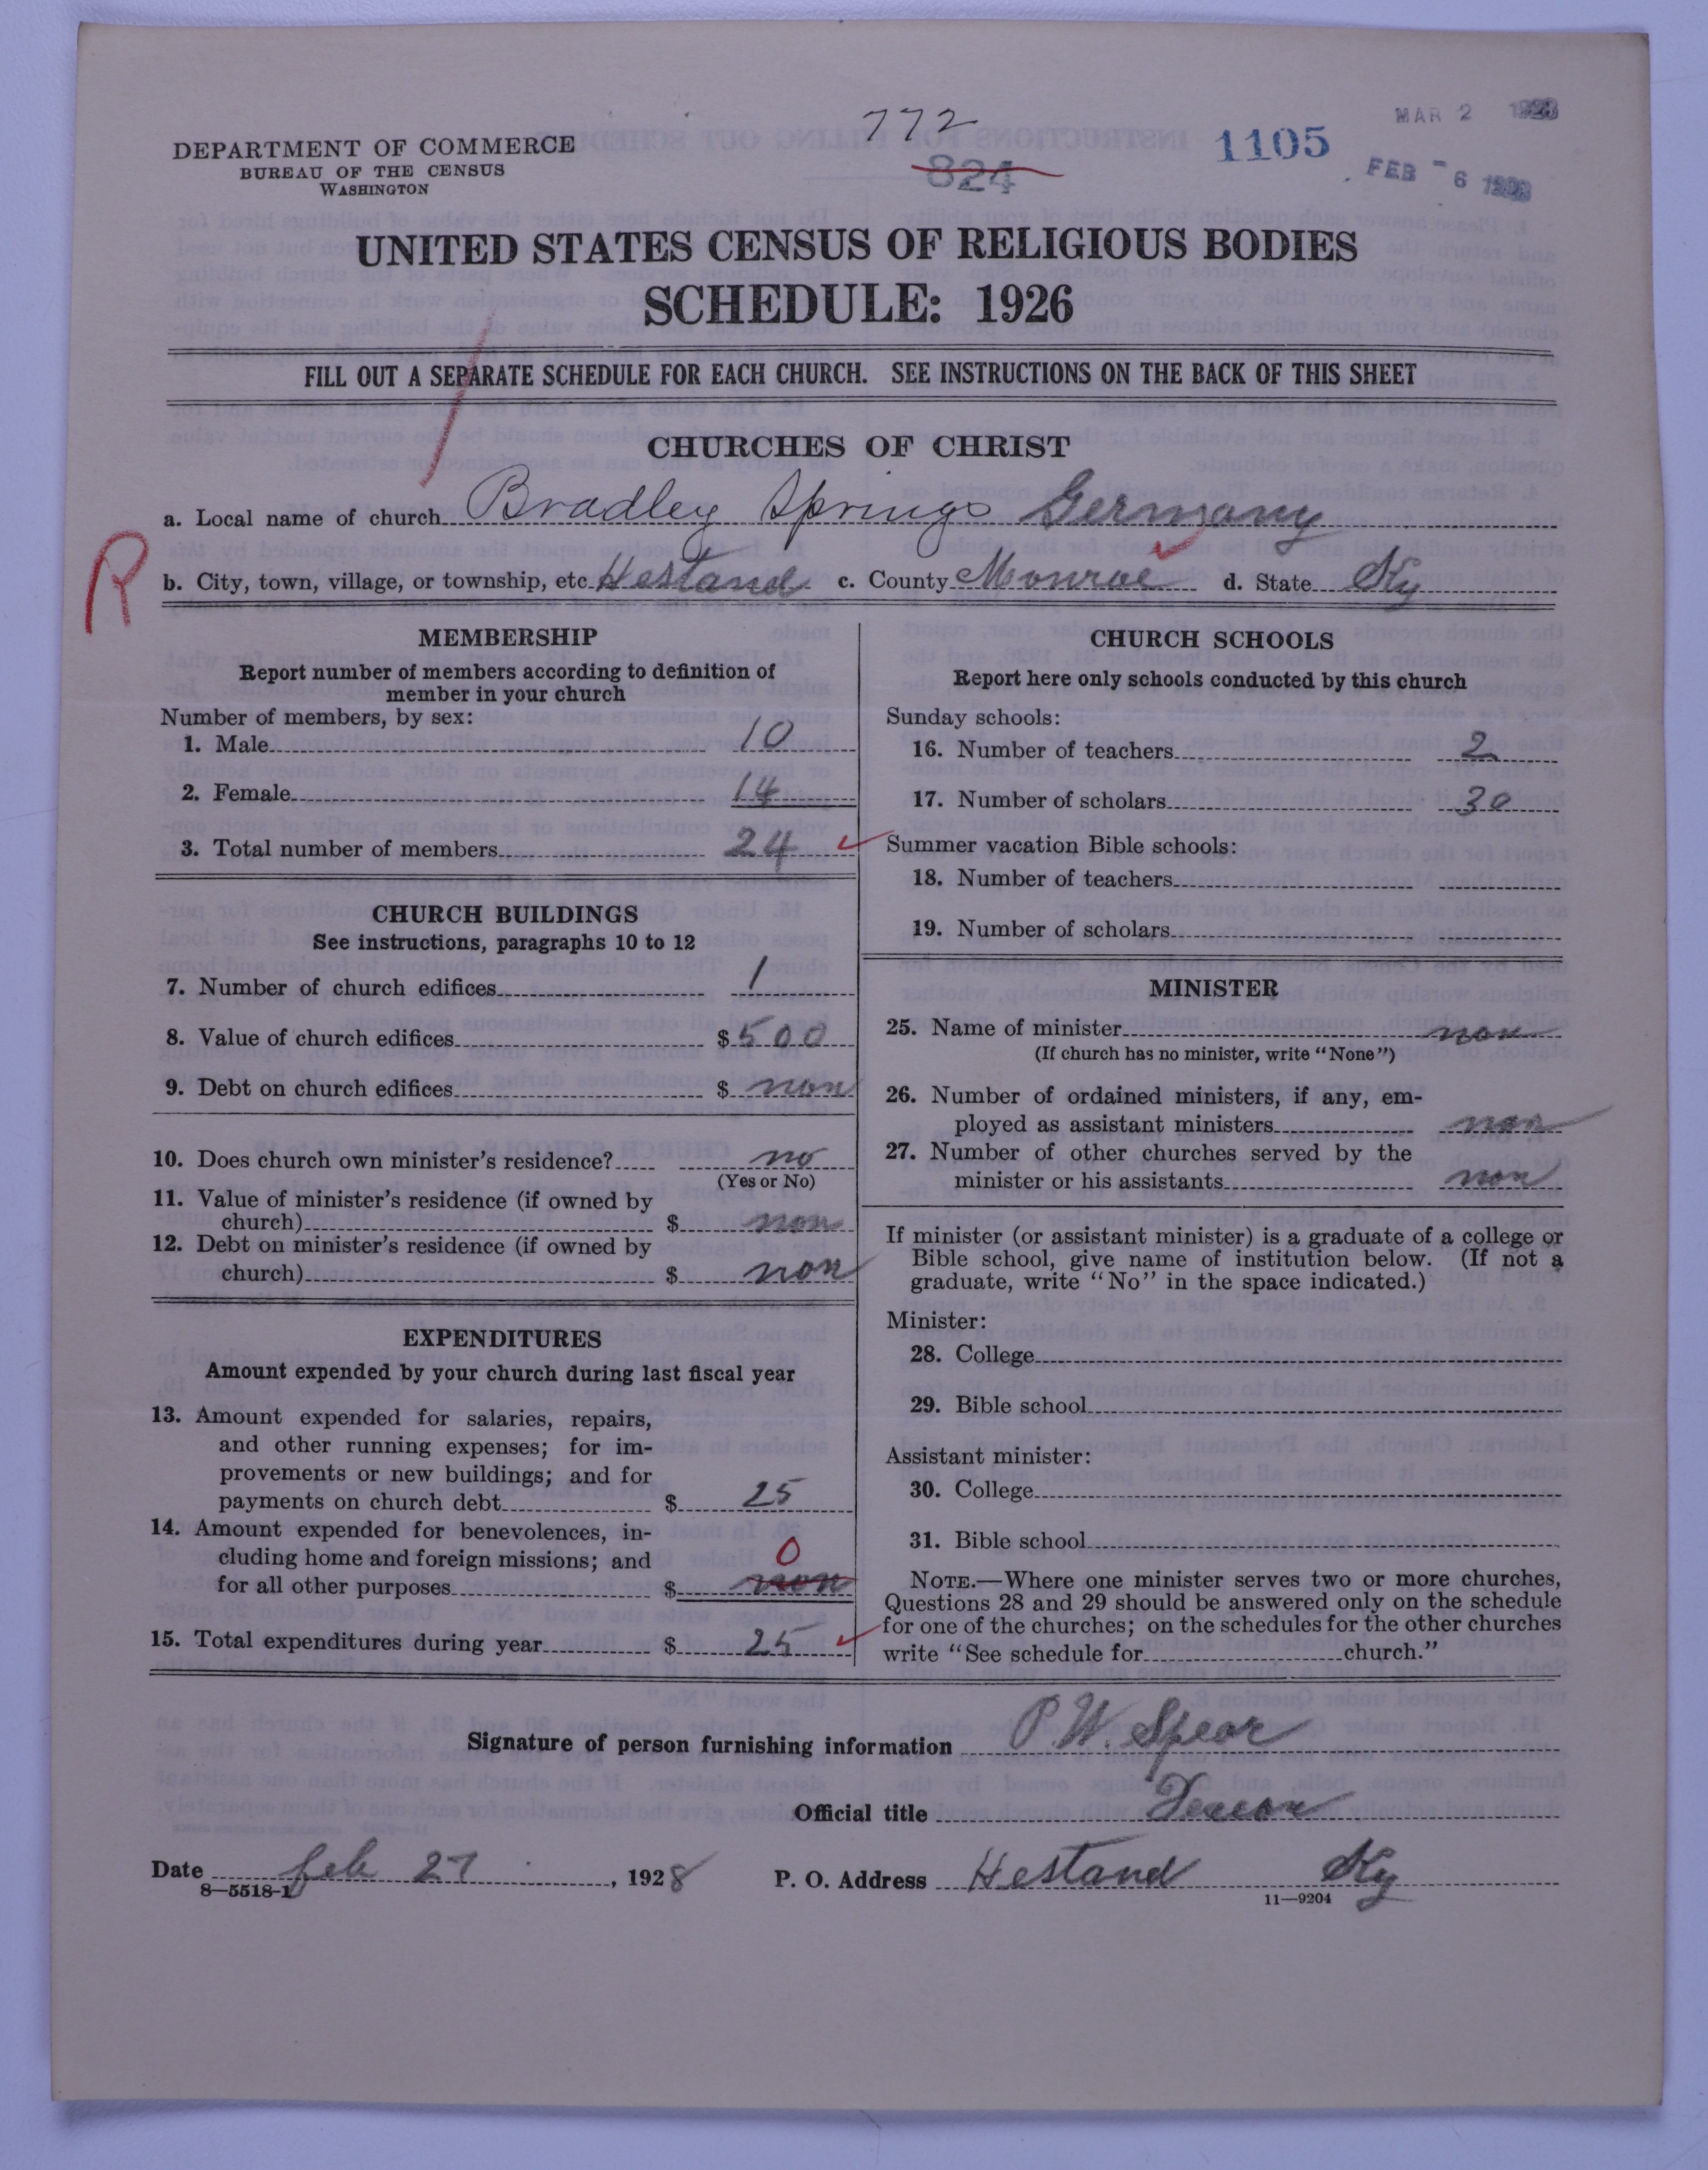 772
MAR 2 1928
DEPARTMENT OF COMMERCE
BUREAU OF THE CENSUS
WASHINGTON
824
1105
FEB - 6 1928
UNITED STATES CENSUS OF RELIGIOUS BODIES
SCHEDULE: 1926
FILL OUT A SEPARATE SCHEDULE FOR EACH CHURCH. SEE INSTRUCTIONS ON THE BACK OF THIS SHEET
CHURCHES OF CHRIST
a. Local name of church Bradley Springs Germany
R
b. City, town, village, or township, etc. Hestand c. County Monroe d. State Ky
MEMBERSHIP
Report number of members according to definition of
member in your church
Number of members, by sex:
1. Male 10
2. Female 14
3. Total number of members 24
CHURCH BUILDINGS
See instructions, paragraphs 10 to 12
7. Number of church edifices 1
8. Value of church edifices $ 500
9. Debt on church edifices $ non
10. Does church own minister's residence? no
(Yes or No)
11. Value of minister's residence (if owned by
church) $ non
12. Debt on minister's residence (if owned by
church) $ non
EXPENDITURES
Amount expended by your church during last fiscal year
13. Amount expended for salaries, repairs,
and other running expenses; for im-
provements or new buildings; and for
payments on church debt $ 25
14. Amount expended for benevolences, in-
cluding home and foreign missions; and 0
for all other purposes $ non
15. Total expenditures during year $ 25
CHURCH SCHOOLS
Report here only schools conducted by this church
Sunday schools:
16. Number of teachers 2
17. Number of scholars 30
Summer vacation Bible schools:
18. Number of teachers
19. Number of scholars
MINISTER
25. Name of minister non
(If church has no minister, write "None")
26. Number of ordained ministers, if any, em-
ployed as assistant ministers non
27. Number of other churches served by the
minister or his assistants non
If minister (or assistant minister) is a graduate of a college or
Bible school, give name of institution below. (If not a
graduate, write "No" in the space indicated.)
Minister:
28. College
29. Bible school
Assistant minister:
30. College
31. Bible school
NOTE.—Where one minister serves two or more churches,
Questions 28 and 29 should be answered only on the schedule
for one of the churches; on the schedules for the other churches
write "See schedule for church."
Signature of person furnishing information P. W. Spear
Official title Deacon
Date feb 27, 1928 P. O. Address Hestand Ky
8—5518-1
11—9204